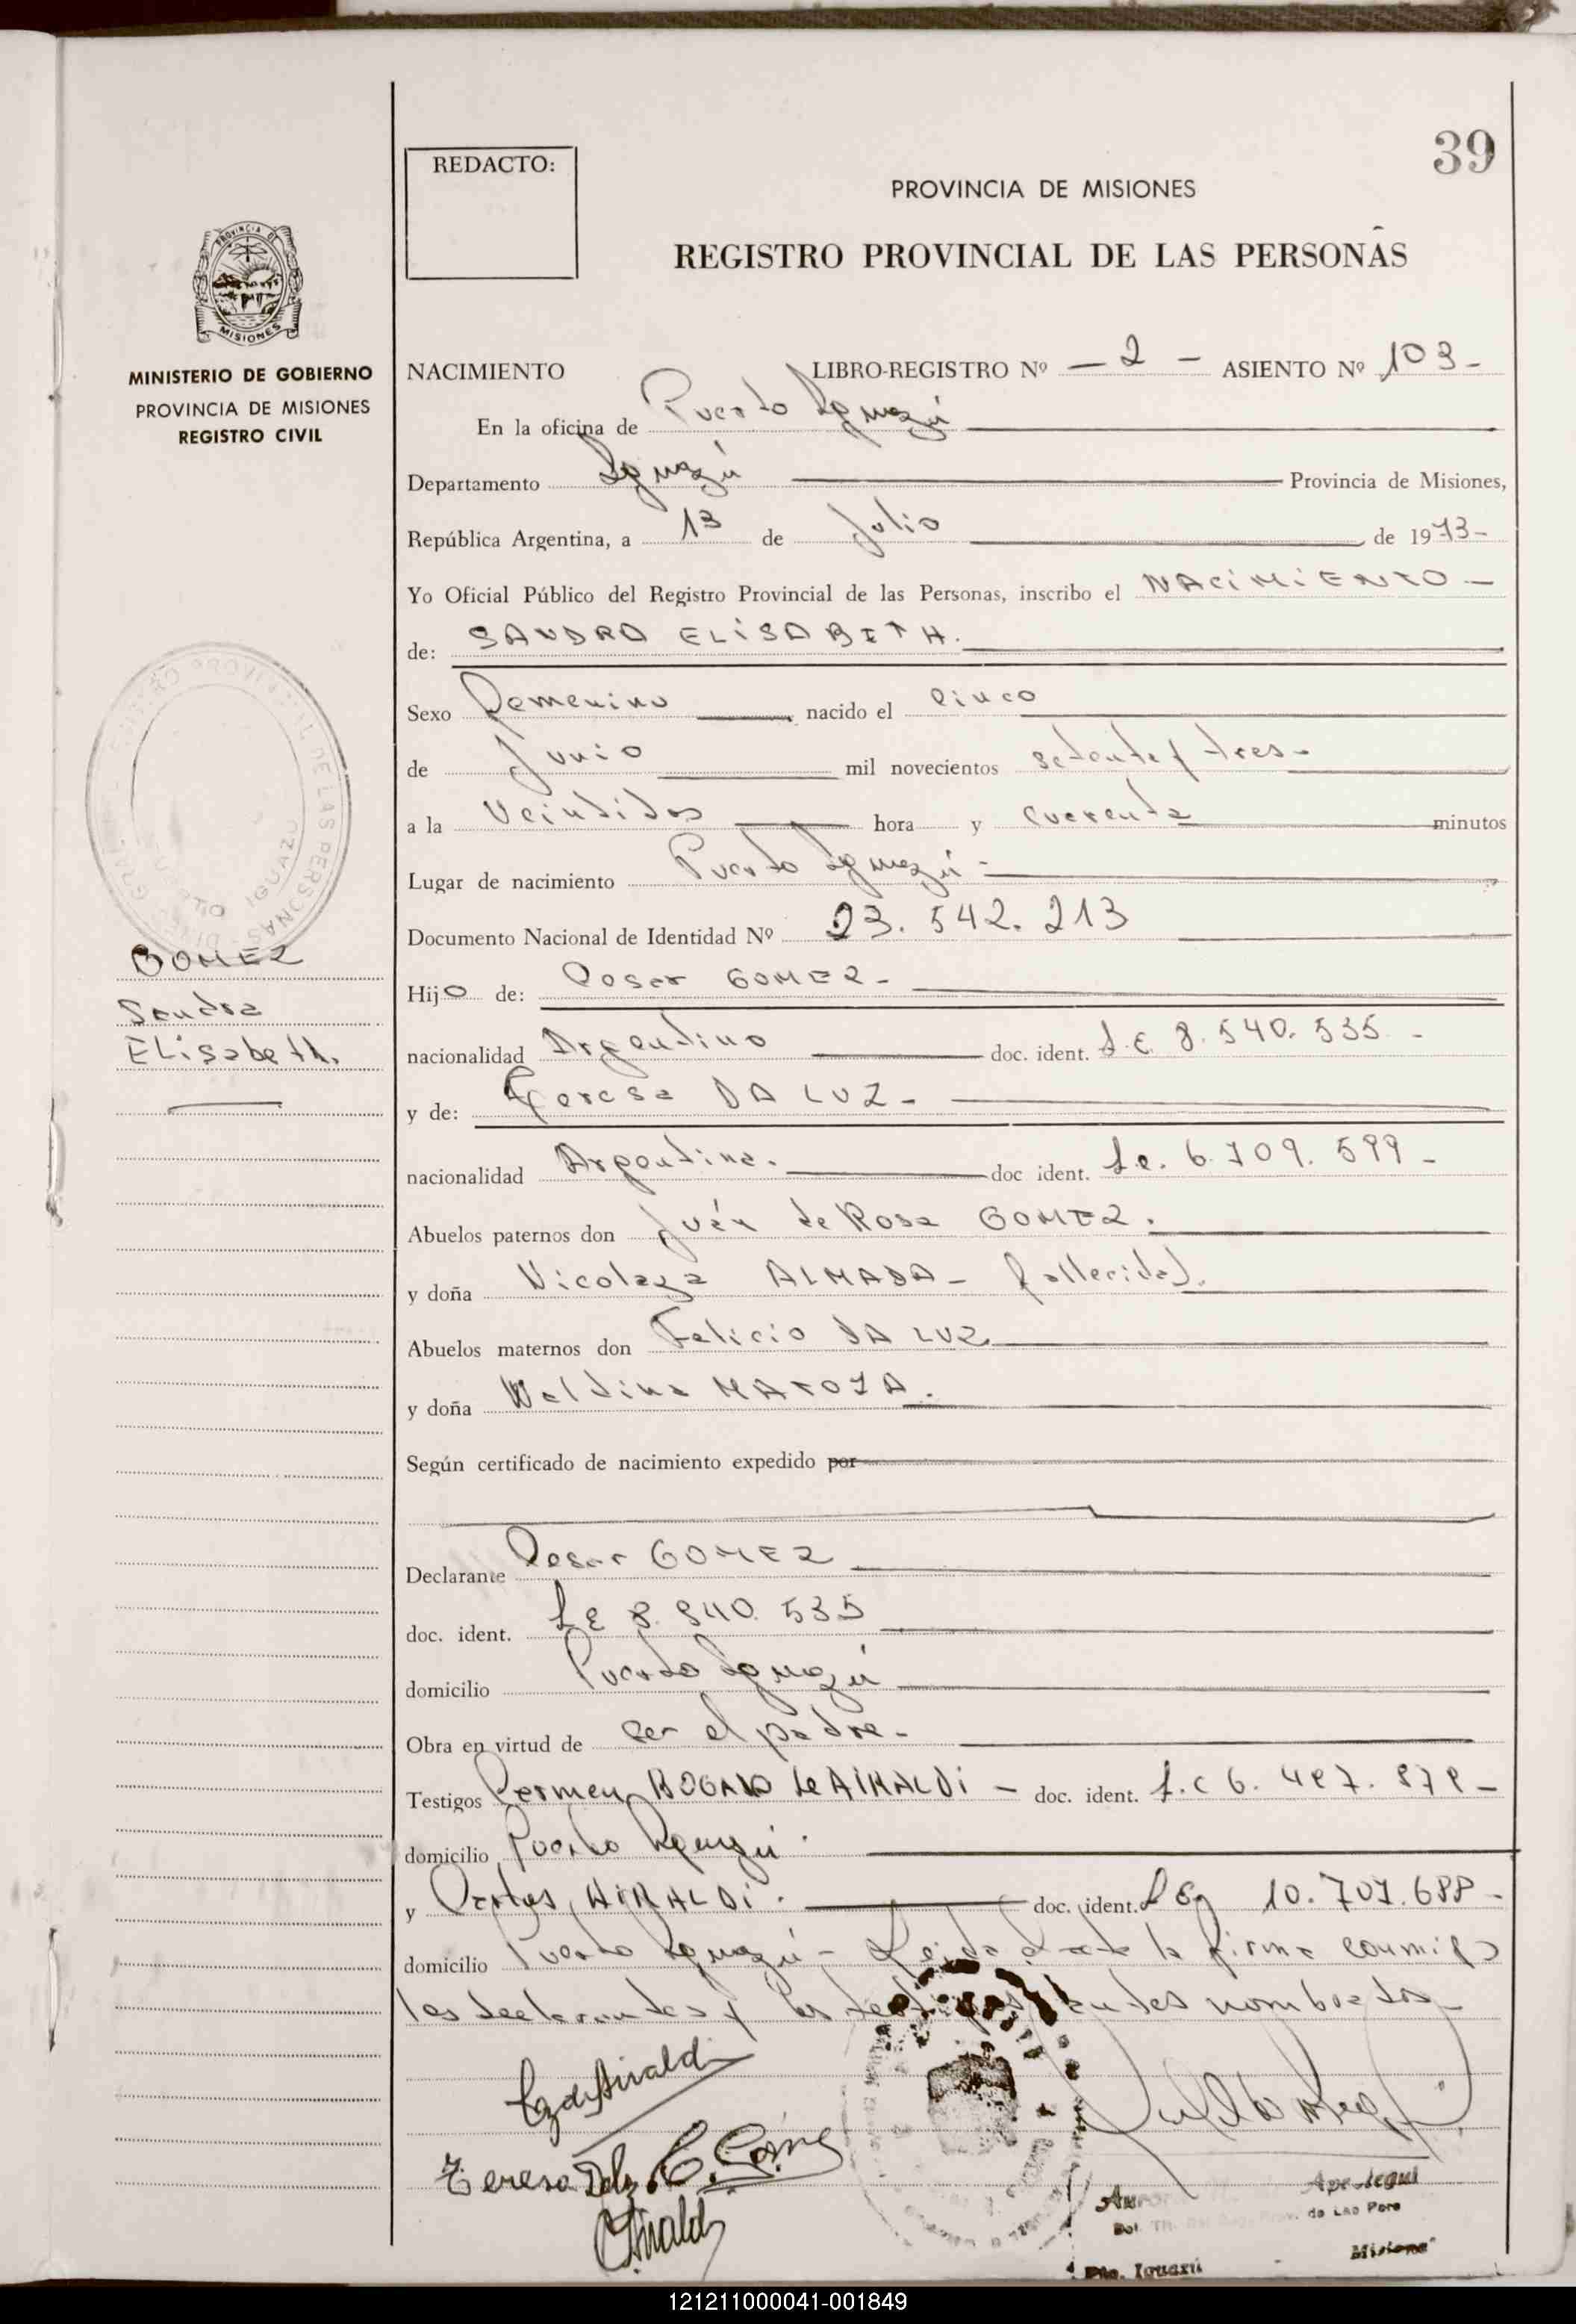 39
REDACTO:
PROVINCIA DE MISIONES
REGISTRO PROVINCIAL DE LAS PERSONAS
PROVINCIA DE
MISIONES
MINISTERIO DE GOBIERNO
PROVINCIA DE MISIONES
REGISTRO CIVIL
NACIMIENTO LIBRO-REGISTRO Nº - 2 - ASIENTO Nº 103-
En la oficina de Puerto Iguazú
Departamento Iguazú Provincia de Misiones,
República Argentina, a 13 de Julio de 1973-
Yo Oficial Público del Registro Provincial de las Personas, inscribo el NACIMIENTO-
de: SANDRA ELISABETH.
Sexo Femenino nacido el cinco
de Junio mil novecientos setenta y tres-
a la Veintidos hora y cuarenta minutos
Lugar de nacimiento Puerto Iguazú-
Documento Nacional de Identidad Nº 23.542.213
GOMEZ
Sandra
Elisabeth.
Hijo de: Cesar GOMEZ-
nacionalidad Argentino doc. ident. L.E. 8.540.535-
y de: Teresa DA LUZ-
nacionalidad Argentina. doc ident. L.c. 6.709.599-
Abuelos paternos don Juán de Rosa GOMEZ.
y doña Nicolaza ALMADA- (fallecida).
Abuelos maternos don Felicio DA LUZ
y doña MATOZA.
Según certificado de nacimiento expedido por
Declarante Cesar GOMEZ
doc. ident. LE 8.540.535
domicilio Puerto Iguazú
Obra en virtud de ser el padre-
Testigos Carmen BOGADO de AIRALDI - doc. ident. L.C 6.487.878-
domicilio Puerto Iguazú.
y Carlos AIRALDI. doc. ident. 10.707.688-
domicilio Puerto Iguazú- Leida el acta la firma conmigo
los declarantes y los testigos antes nombrados-
Teresa Gómez
CAiraldi
Apestegui
de Las Pers
Pto. Iguazú
Misiones
121211000041-001849